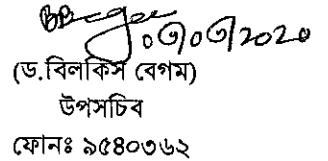 ০৩/০৩/২০২০
(ড.বিলকিস বেগম)
উপসচিব
ফোনঃ ৯৫৪০৩৬২